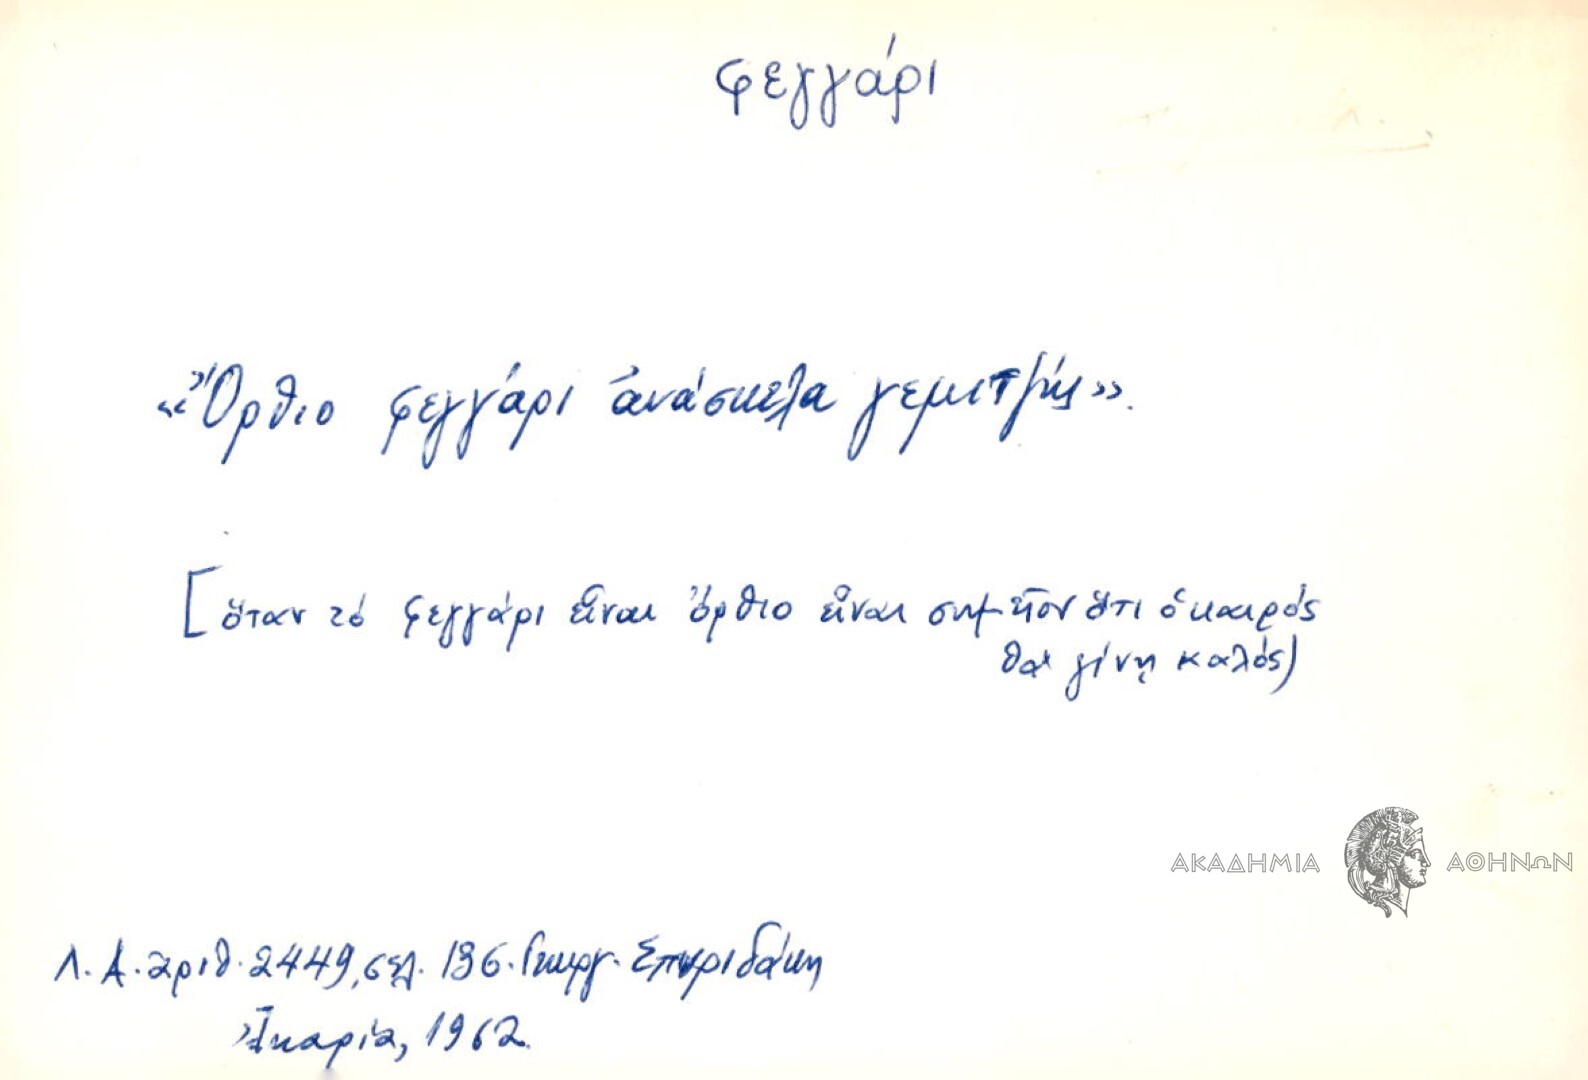 φεγγάρι
«Ὄρθιο φεγγάρι ἀνάσκελα γεμιτζῆς».
[ὅταν τό φεγγάρι εἶναι ὄρθιο εἶναι σημεῖον ὅτι ὁ καιρός
θά γίνῃ καλός)
ΑΚΑΔΗΜΙΑ ΑΘΗΝΩΝ
Λ. Α. ἀριθ. 2449, σελ. 136. Γεωργ. Σπυριδάκη
Ἰκαρία, 1962.